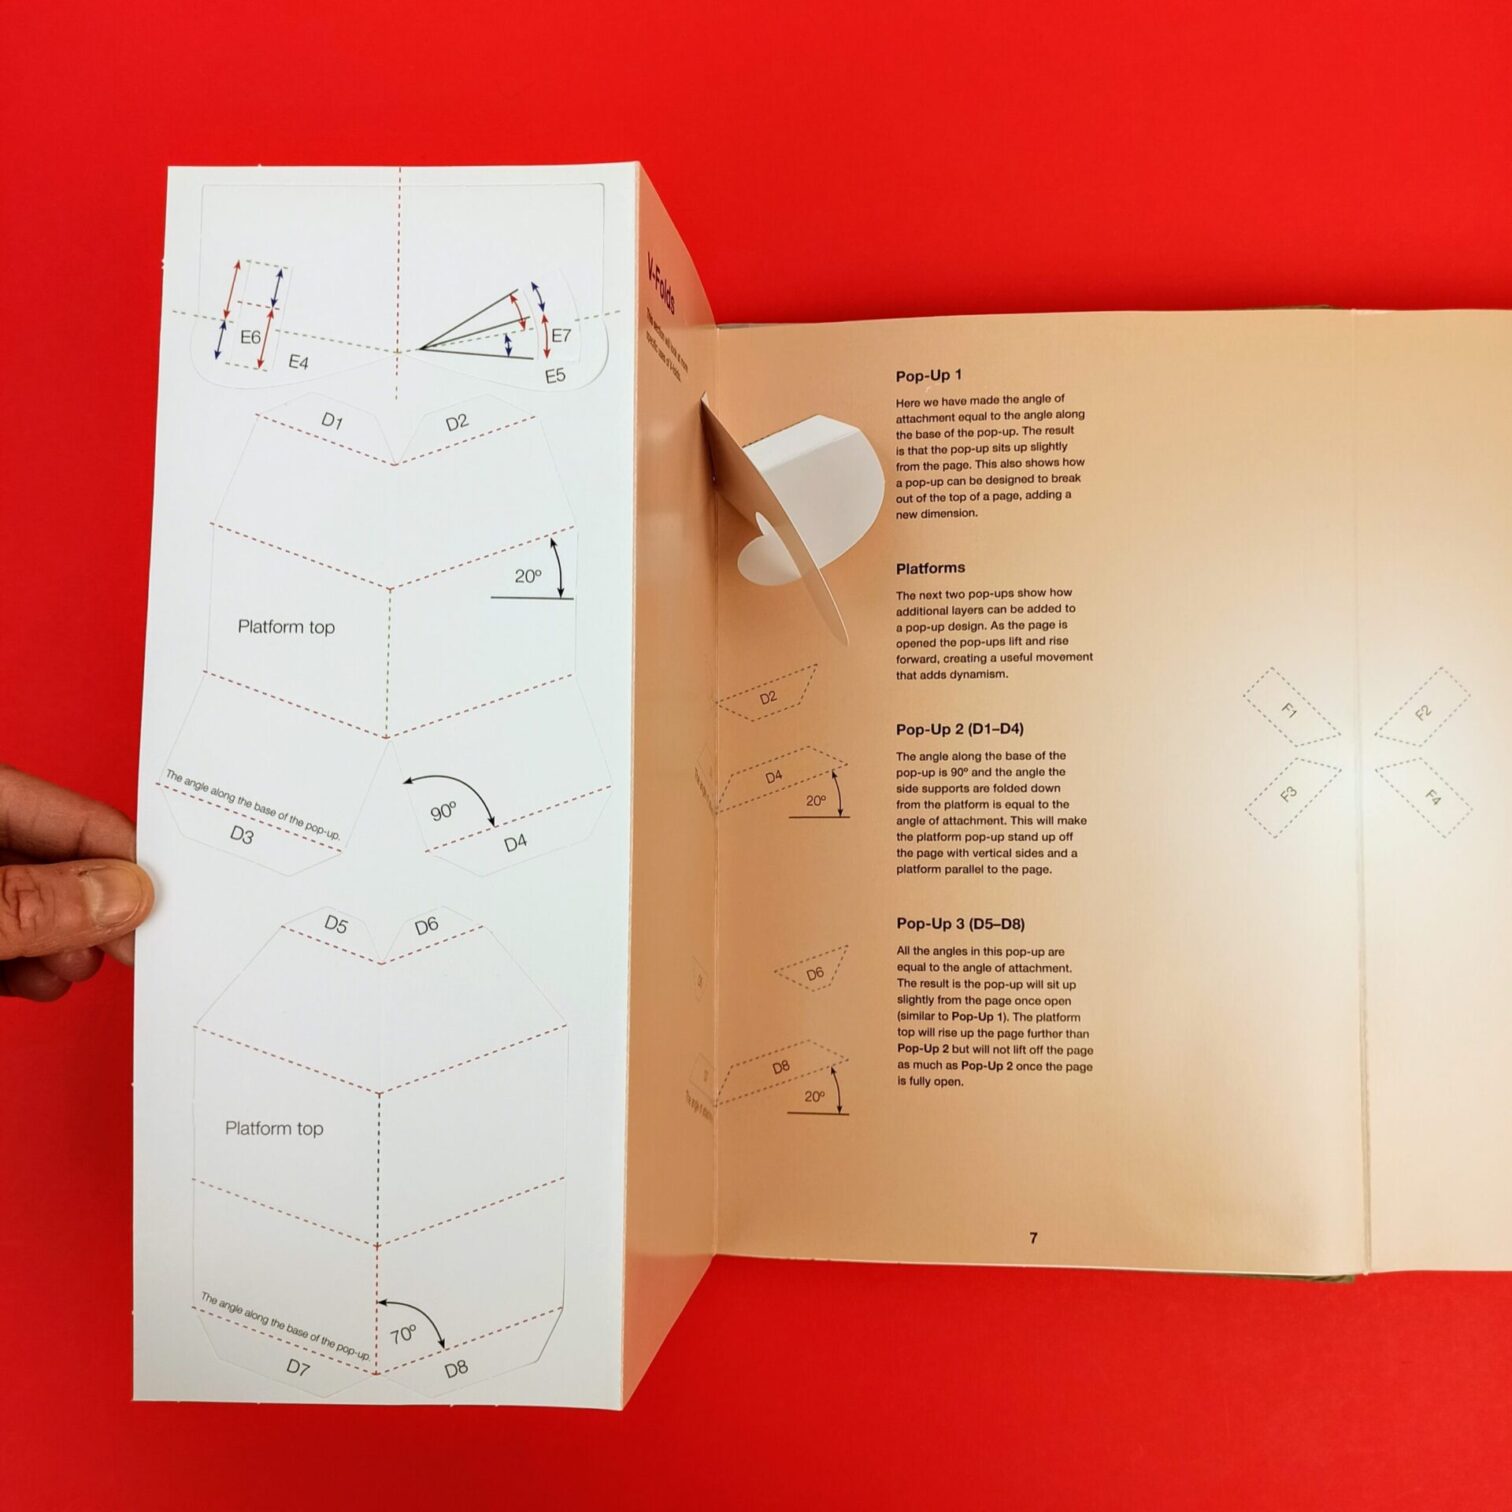 E6
E4
E7
E5
D1
D2
20º
Platform top
The angle along the base of the pop-up.
D3
90º
D4
D5
D6
Platform top
The angle along the base of the pop-up.
D7
70º
D8
V-Folds
D2
D4
20º
D6
D8
20º
Pop-Up 1
Here we have made the angle of
attachment equal to the angle along
the base of the pop-up. The result
is that the pop-up sits up slightly
from the page. This also shows how
a pop-up can be designed to break
out of the top of a page, adding a
new dimension.
Platforms
The next two pop-ups show how
additional layers can be added to
a pop-up design. As the page is
opened the pop-ups lift and rise
forward, creating a useful movement
that adds dynamism.
Pop-Up 2 (D1–D4)
The angle along the base of the
pop-up is 90º and the angle the
side supports are folded down
from the platform is equal to the
angle of attachment. This will make
the platform pop-up stand up off
the page with vertical sides and a
platform parallel to the page.
Pop-Up 3 (D5–D8)
All the angles in this pop-up are
equal to the angle of attachment.
The result is the pop-up will sit up
slightly from the page once open
(similar to Pop-Up 1). The platform
top will rise up the page further than
Pop-Up 2 but will not lift off the page
as much as Pop-Up 2 once the page
is fully open.
7
F1
F2
F3
F4